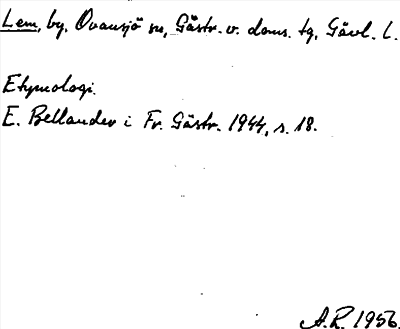 Lem, by, Ovansjö sn, Gästr. v. doms. tg, Gävl. l.
Etymologi.
E. Bellander i Fr. Gästr. 1944, s. 18.
A.R. 1956.